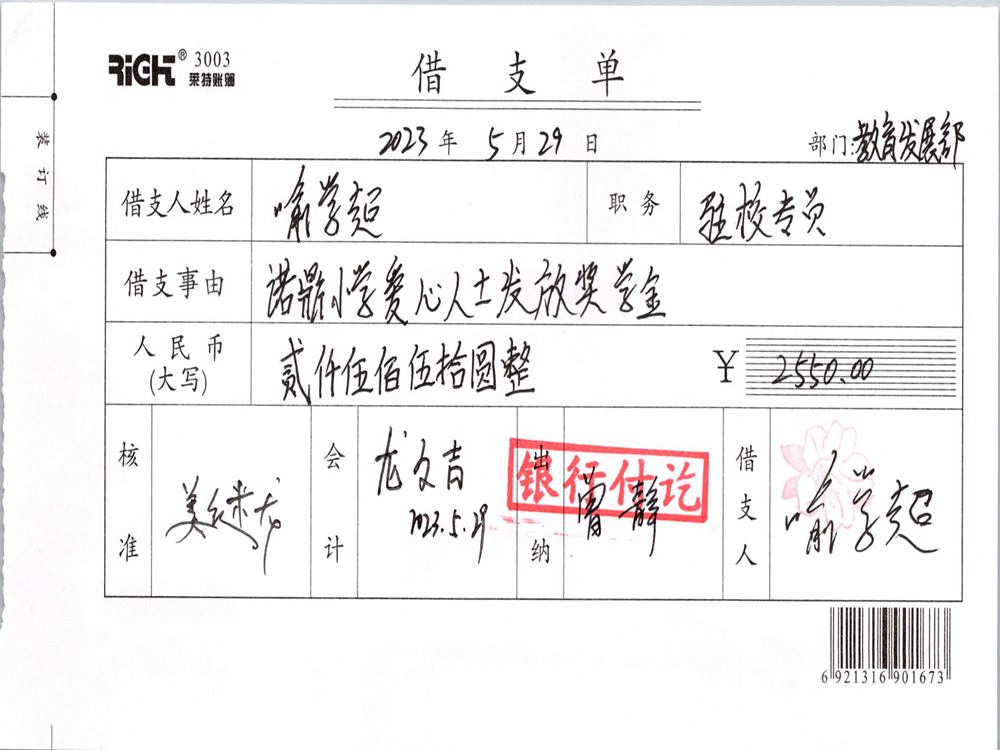 RIGHT® 3003
莱特账簿
借支单
2023年 5月29日
部门:教育发展部
装订线
借支人姓名 喻学超 职务 驻校专员
借支事由 诺鼎小学爱心人士发放奖学金
人民币(大写) 贰仟伍佰伍拾圆整 ¥ 2550.00
核准 姜继龙 会计 龙文吉 2023.5.29 出纳 曾静 借支人 喻学超
银行付讫
6 921316 901673